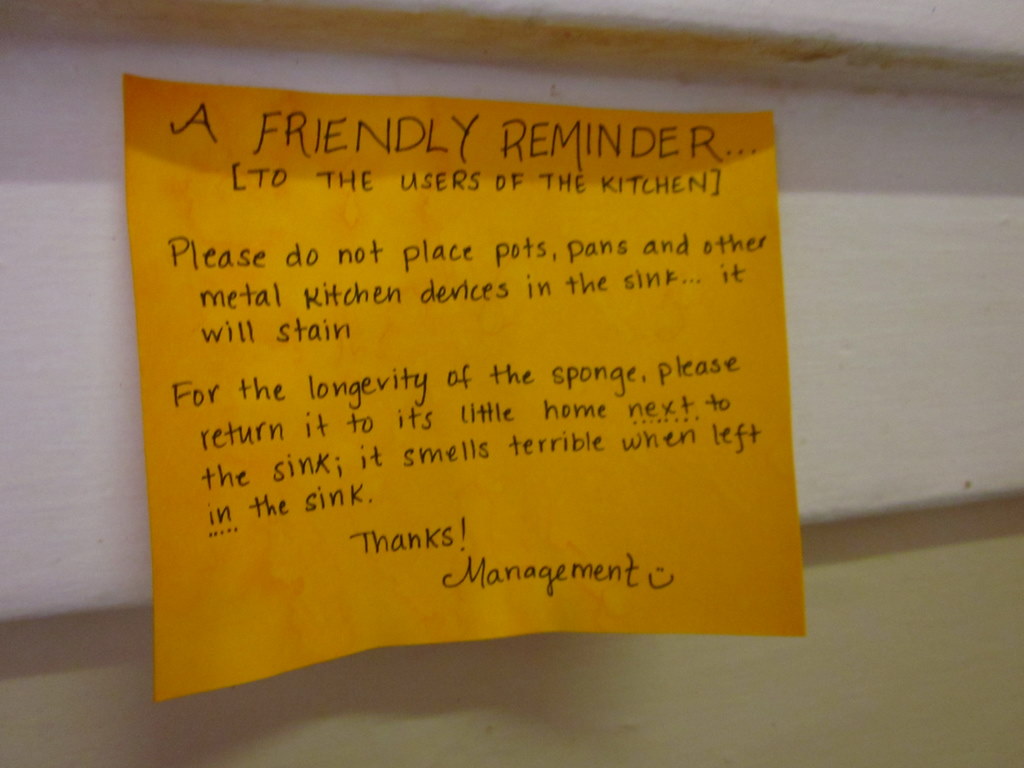 A FRIENDLY REMINDER...
[TO THE USERS OF THE KITCHEN]
Please do not place pots, pans and other
metal kitchen devices in the sink... it
will stain
For the longevity of the sponge, please
return it to its little home next to
the sink; it smells terrible when left
in the sink.
Thanks!
Management